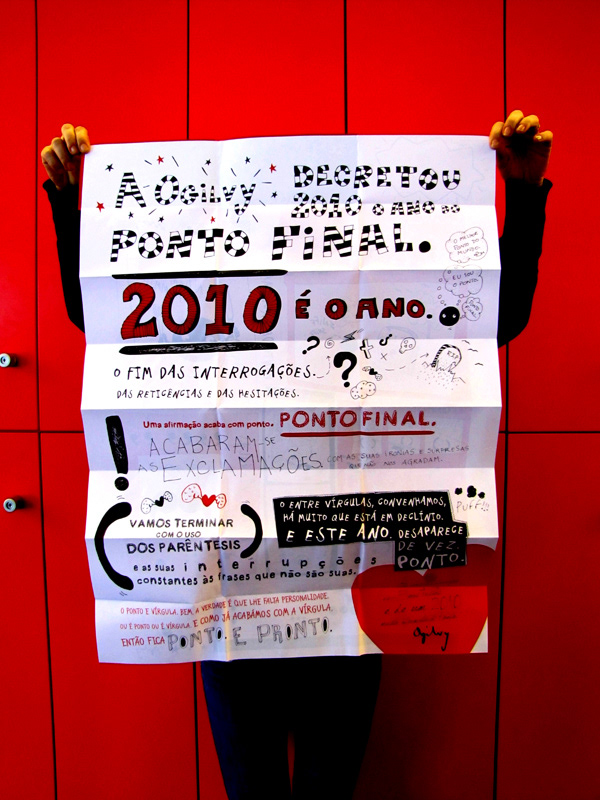 A Ogilvy DECRETOU
2010 O ANO DO
PONTO FINAL.
O MELHOR
PONTO DO
MUNDO.
EU SOU
O PONTO
2010 É O ANO.
O FIM DAS INTERROGAÇÕES.
?
?
DAS RETICÊNCIAS E DAS HESITAÇÕES.
!
Uma afirmação acaba com ponto. PONTO FINAL.
ACABARAM-SE
AS EXCLAMAÇÕES. COM AS SUAS IRONIAS E SURPRESAS
QUE NÃO NOS AGRADAM.
PUFF!!!
( VAMOS TERMINAR
COM O USO
DOS PARÊNTESIS )
e as suas interrupções
constantes às frases que não são suas.
O ENTRE VÍRGULAS, CONVENHAMOS,
HÁ MUITO QUE ESTÁ EM DECLÍNIO.
E ESTE ANO. DESAPARECE
DE VEZ.
PONTO.
O PONTO E VÍRGULA. BEM, A VERDADE É QUE LHE FALTA PERSONALIDADE.
OU É PONTO OU É VÍRGULA. E COMO JÁ ACABÁMOS COM A VÍRGULA,
ENTÃO FICA PONTO. E PRONTO.
Ogilvy